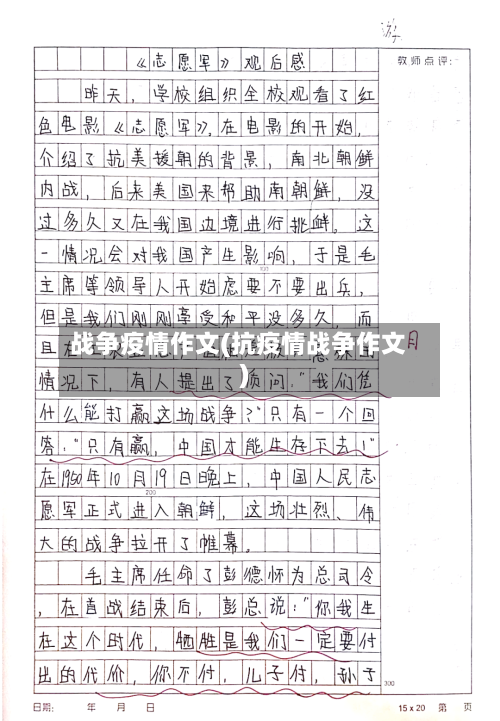 游
《志愿军》观后感
教师点评:
昨天，学校组织全校观看了红
色电影《志愿军》，在电影的开始，
介绍了抗美援朝的背景，南北朝鲜
内战，后来美国来帮助南朝鲜，没
过多久又在我国边境进行挑衅。这
一情况会对我国产生影响，于是毛
100
主席等领导人开始虑要不要出兵，
但是我们刚刚享受和平没多久，而
且在
战争疫情作文(抗疫情战争作文
)
月
情况下，有人提出了质问："我们凭
什么能打赢这场战争？"只有一个回
答："只有赢，中国才能生存下去！"
在1950年10月19日晚上，中国人民志
200
愿军正式进入朝鲜，这场壮烈、伟
大的战争拉开了帷幕。
毛主席任命了彭德怀为总司令
，在首战结束后，彭总说："你我生
在这个时代，牺牲是我们一定要付
出的代价，你不付，儿子付，孙子
300
日期: 年 月 日 15x20 第 页